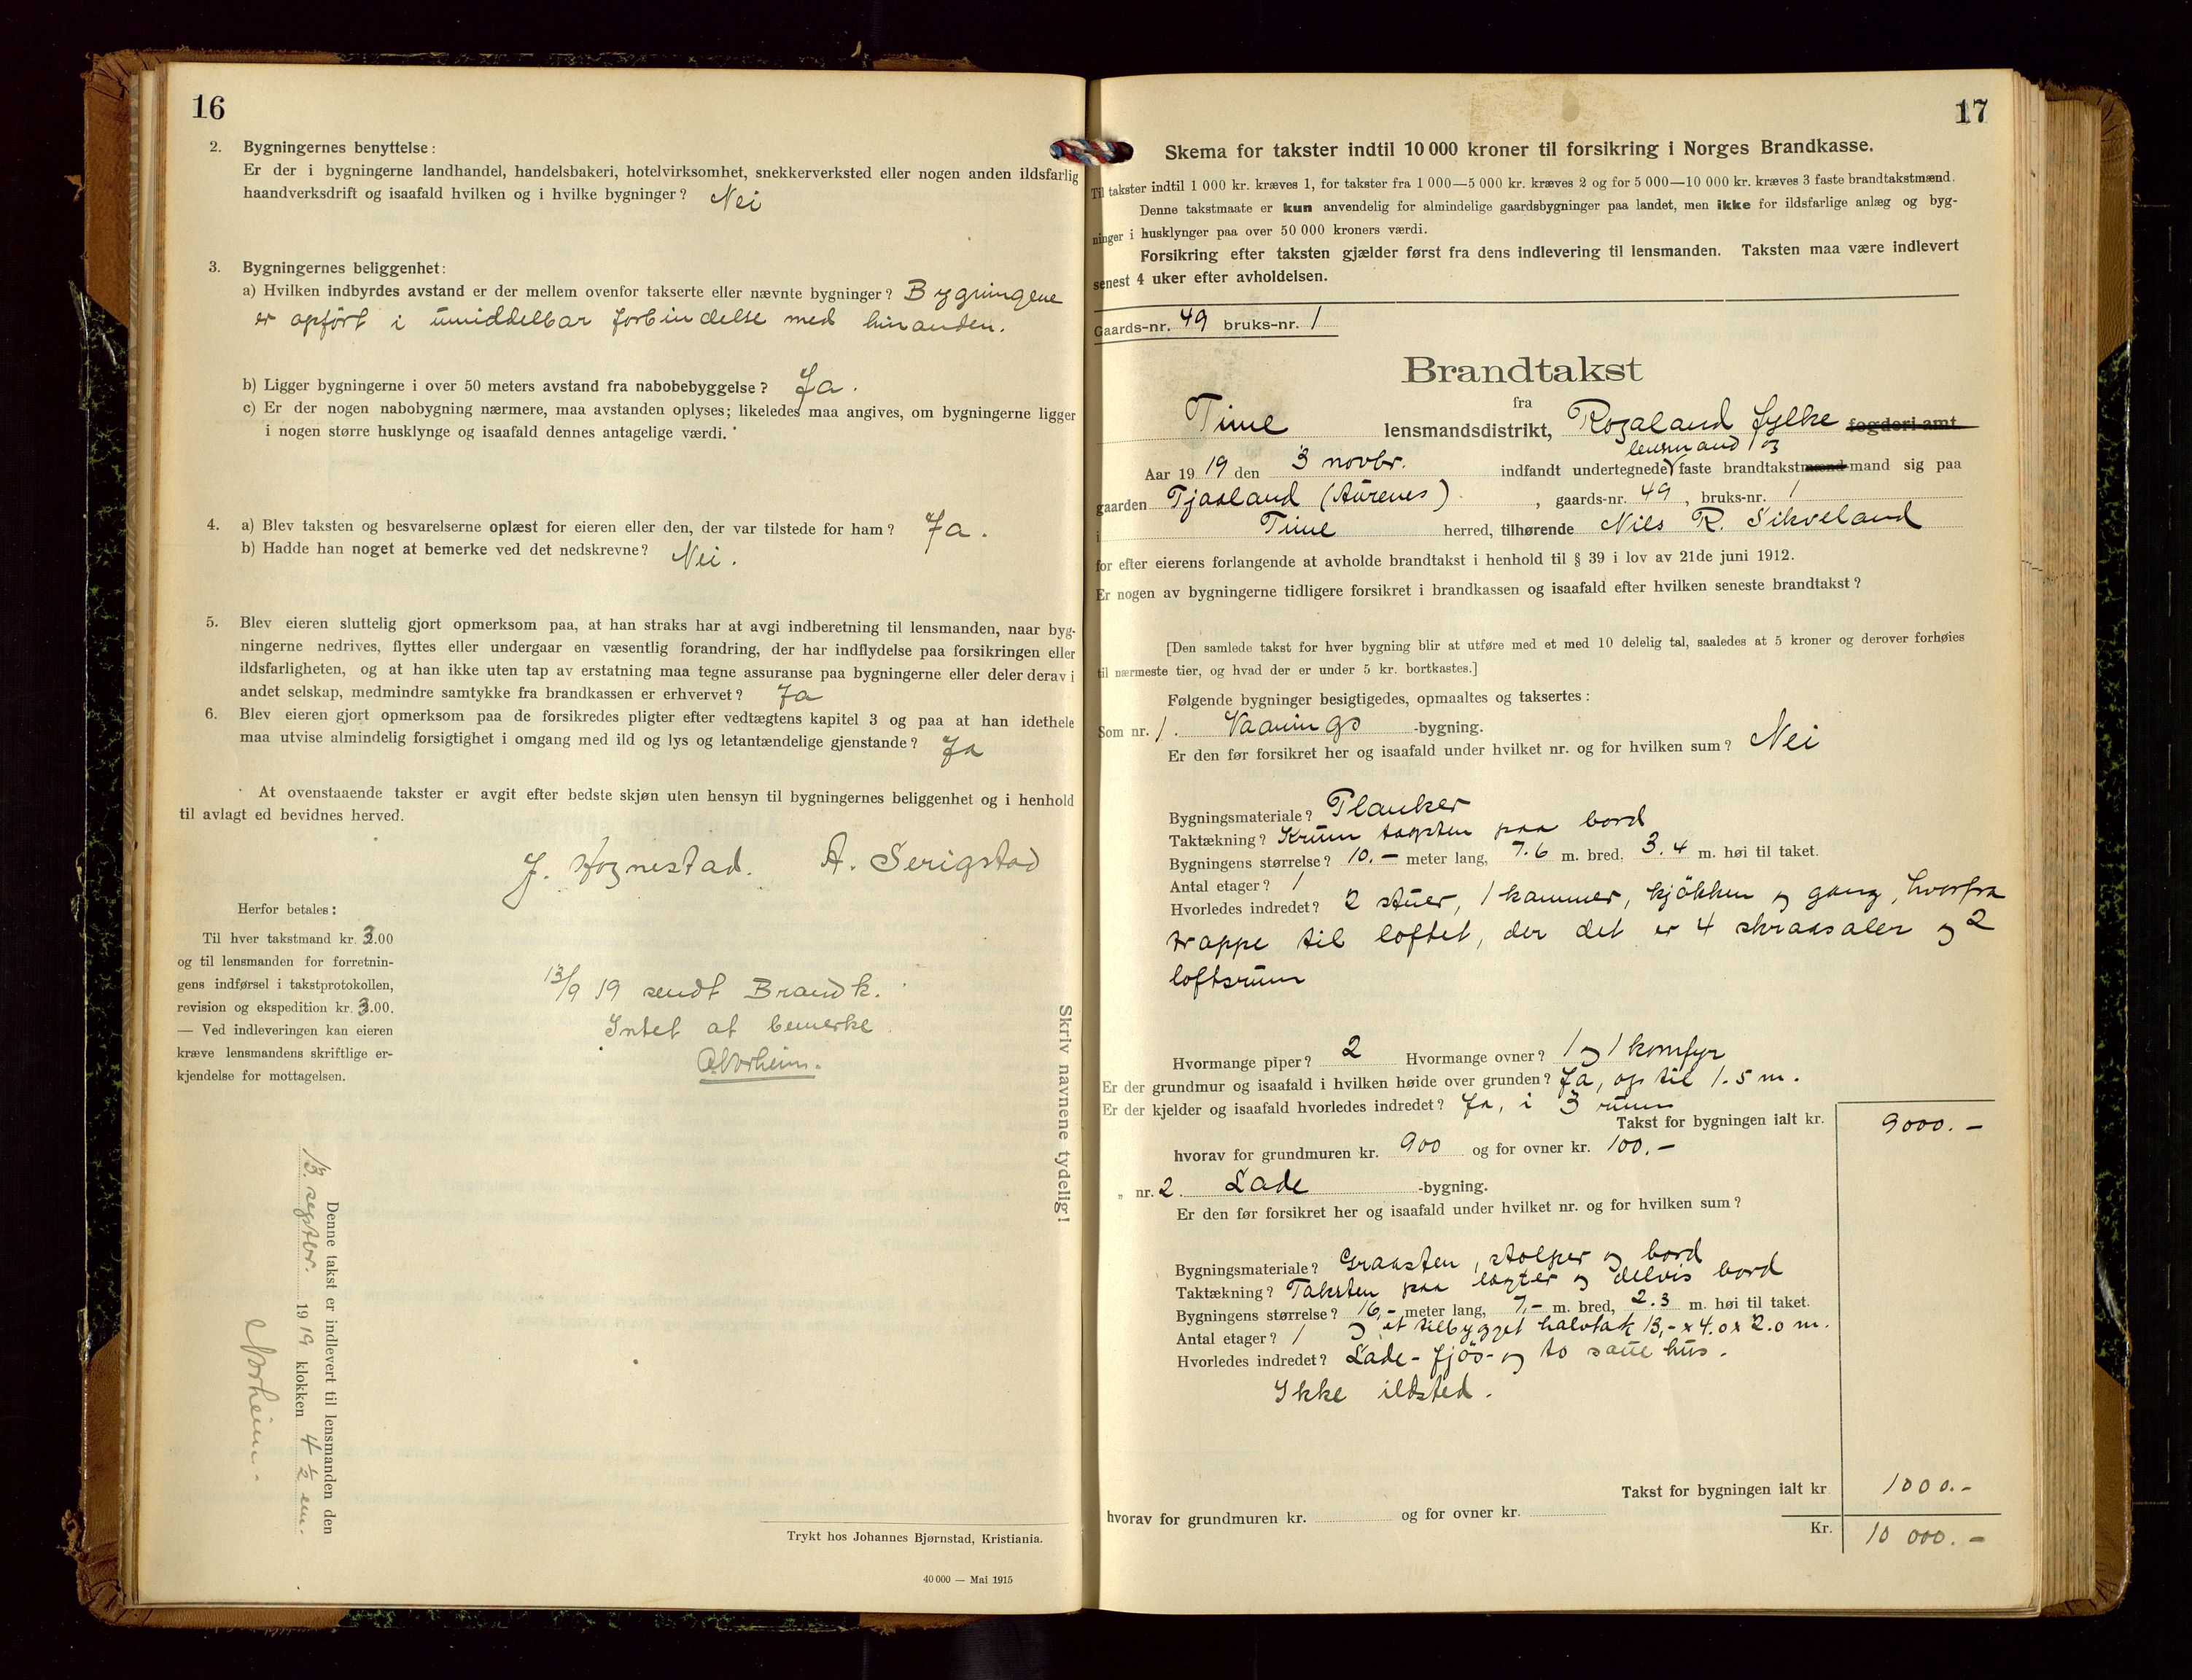 16
2. Bygningernes benyttelse:
Er der i bygningerne landhandel, handelsbakeri, hotelvirksomhet, snekkerverksted eller nogen anden ildsfarlig
haandverksdrift og isaafald hvilken og i hvilke bygninger? Nei
3. Bygningernes beliggenhet:
a) Hvilken indbyrdes avstand er der mellem ovenfor takserte eller nævnte bygninger? Bygningene
er opført i umiddelbar forbindelse med hinanden.
b) Ligger bygningerne i over 50 meters avstand fra nabobebyggelse? Ja.
c) Er der nogen nabobygning nærmere, maa avstanden oplyses; likeledes maa angives, om bygningerne ligger
i nogen større husklynge og isaafald dennes antagelige værdi.
4. a) Blev taksten og besvarelserne oplæst for eieren eller den, der var tilstede for ham? Ja.
b) Hadde han noget at bemerke ved det nedskrevne? Nei.
5. Blev eieren sluttelig gjort opmerksom paa, at han straks har at avgi indberetning til lensmanden, naar byg-
ningerne nedrives, flyttes eller undergaar en væsentlig forandring, der har indflydelse paa forsikringen eller
ildsfarligheten, og at han ikke uten tap av erstatning maa tegne assuranse paa bygningerne eller deler derav i
andet selskap, medmindre samtykke fra brandkassen er erhvervet? Ja
6. Blev eieren gjort opmerksom paa de forsikredes pligter efter vedtægtens kapitel 3 og paa at han idethele
maa utvise almindelig forsigtighet i omgang med ild og lys og letantændelige gjenstande? Ja
At ovenstaaende takster er avgit efter bedste skjøn uten hensyn til bygningernes beliggenhet og i henhold
til avlagt ed bevidnes herved.
J. Hognestad. A. Serigstad
Herfor betales:
Til hver takstmand kr. 3.00
og til lensmanden for forretnin-
gens indførsel i takstprotokollen,
revision og ekspedition kr. 3.00.
— Ved indleveringen kan eieren
kræve lensmandens skriftlige er-
kjendelse for mottagelsen.
13/9 19 sendt Brandk.
Intet at bemerke.
Skriv navnene tydelig!
Denne takst er indlevert til lensmanden den
13. septbr. 1919 klokken 4 ½ em.
Trykt hos Johannes Bjørnstad, Kristiania.
40 000 — Mai 1915
17
Skema for takster indtil 10 000 kroner til forsikring i Norges Brandkasse.
Til takster indtil 1 000 kr. kræves 1, for takster fra 1 000—5 000 kr. kræves 2 og for 5 000—10 000 kr. kræves 3 faste brandtakstmænd.
Denne takstmaate er kun anvendelig for almindelige gaardsbygninger paa landet, men ikke for ildsfarlige anlæg og byg-
ninger i husklynger paa over 50 000 kroners værdi.
Forsikring efter taksten gjælder først fra dens indlevering til lensmanden. Taksten maa være indlevert
senest 4 uker efter avholdelsen.
Gaards-nr. 49 bruks-nr. 1
Brandtakst
fra
Time lensmandsdistrikt, Rogaland fylke fogderi amt
lensmand og
Aar 1919 den 3 novbr. indfandt undertegnede faste brandtakstmænd mand sig paa
gaarden Tjaaland (Aurenes), gaards-nr. 49, bruks-nr. 1
i Time herred, tilhørende Nils R. Sikveland
for efter eierens forlangende at avholde brandtakst i henhold til § 39 i lov av 21de juni 1912.
Er nogen av bygningerne tidligere forsikret i brandkassen og isaafald efter hvilken seneste brandtakst?
[Den samlede takst for hver bygning blir at utføre med et med 10 delelig tal, saaledes at 5 kroner og derover forhøies
til nærmeste tier, og hvad der er under 5 kr. bortkastes.]
Følgende bygninger besigtigedes, opmaaltes og taksertes:
Som nr. 1. Vaanings-bygning.
Er den før forsikret her og isaafald under hvilket nr. og for hvilken sum? Nei
Bygningsmateriale? Planker
Taktækning? Krum tagsten paa bord
Bygningens størrelse? 10.- meter lang, 7.6 m. bred, 3.4 m. høi til taket.
Antal etager? 1
Hvorledes indredet? 2 stuer, 1 kammer, kjøkken og gang, hvorfra
trappe til loftet, der det er 4 skraasaler og 2
loftsrum
Hvormange piper? 2 Hvormange ovner? 1 og 1 komfyr
Er der grundmur og isaafald i hvilken høide over grunden? Ja, op til 1.5 m.
Er der kjelder og isaafald hvorledes indredet? Ja, i 3 rum
Takst for bygningen ialt kr. 9000.-
hvorav for grundmuren kr. 900 og for ovner kr. 100.-
„ nr. 2. Lade-bygning.
Er den før forsikret her og isaafald under hvilket nr. og for hvilken sum?
Bygningsmateriale? Graasten, stolper og bord
Taktækning? Taksten paa lægter og delvis bord
Bygningens størrelse? 16,- meter lang, 7,- m. bred, 2.3 m. høi til taket.
Antal etager? 1 og et tilbygget halvtak 13,- x 4.0 x 2.0 m.
Hvorledes indredet? Lade- fjøs- og to saue hus.
Ikke ildsted.
Takst for bygningen ialt kr 1000.-
hvorav for grundmuren kr. og for ovner kr.
Kr. 10 000.-